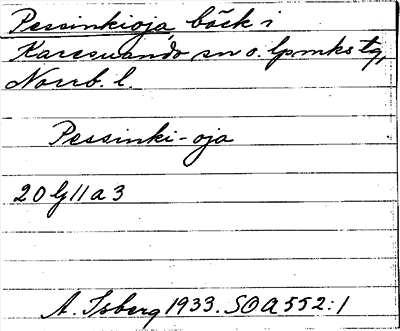 Pessinkioja, bäck i
Karesuando sn o. lpmks tg,
Norrb. l.
Pessinki-oja
20 lj 11 a 3
A. Isberg 1933. SOA 552:1